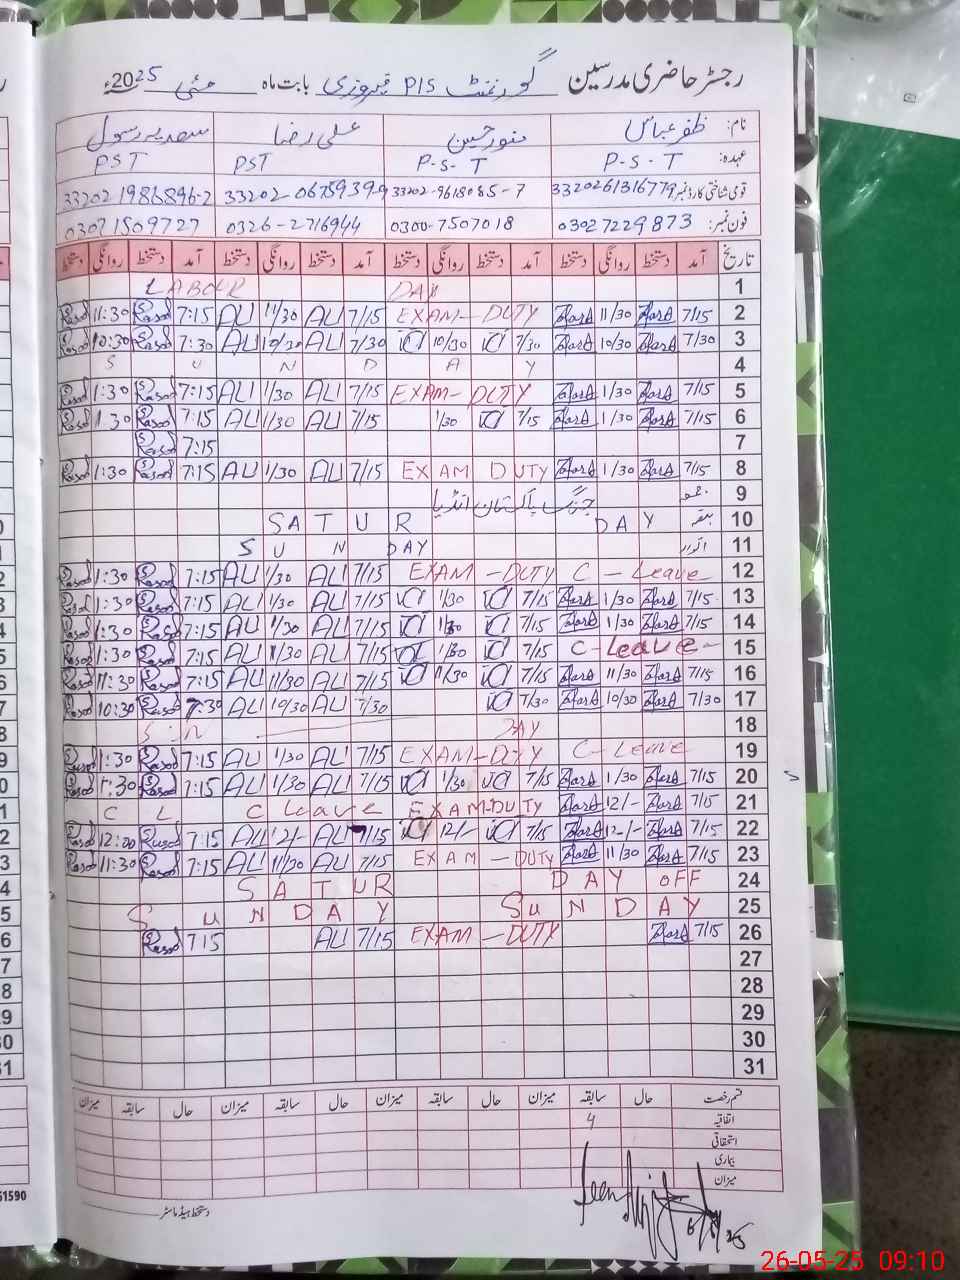 رجسٹر حاضری مدرسین گورنمنٹ P/S فیروزی بابت ماہ مئی 2025ء
نام: ظفر عباس منور حسین علی رضا سعدیہ رسول
عہدہ: P-S-T P-S-T PST PST
قومی شناختی کارڈ نمبر 3320261316779 33202-9618085-7 33202-0675939-9 33202 1986896-2
فون نمبر: 03027229873 0300-7507018 0326-2716944 03071509727
تاریخ آمد دستخط روانگی دستخط آمد دستخط روانگی دستخط آمد دستخط روانگی دستخط آمد دستخط روانگی دستخط
1 LABOUR DAY
2 7/15 11/30 EXAM-DUTY 7/15 ALI 11/30 ALI 7:15 Rasool 11:30 Rasool
3 7/30 10/30 7/30 10/30 7/30 ALI 10/30 ALI 7:30 Rasool 10:30 Rasool
4 S U N D A Y
5 7/15 1/30 EXAM-DUTY 7/15 ALI 1/30 ALI 7:15 Rasool 1:30 Rasool
6 7/15 1/30 7/15 1/30 7/15 ALI 1/30 ALI 7:15 Rasool 1:30 Rasool
7 7:15 Rasool
8 7/15 1/30 EXAM DUTY 7/15 ALI 1/30 ALI 7:15 Rasool 1:30 Rasool
9 جمعہ جنگ پاکستان انڈیا
10 ہفتہ S A T U R D A Y
11 اتوار S U N DAY
12 C-Leave EXAM-DUTY 7/15 ALI 1/30 ALI 7:15 Rasool 1:30 Rasool
13 7/15 1/30 7/15 1/30 7/15 ALI 1/30 ALI 7:15 Rasool 1:30 Rasool
14 7/15 1/30 7/15 1/30 7/15 ALI 1/30 ALI 7:15 Rasool 1:30 Rasool
15 C-Leave 7/15 1/30 7/15 ALI 1/30 ALI 7:15 Rasool 1:30 Rasool
16 7/15 11/30 7/15 11/30 7/15 ALI 11/30 ALI 7:15 Rasool 11:30 Rasool
17 7/30 10/30 7/30 7/30 ALI 10/30 ALI 7:30 Rasool 10:30 Rasool
18 S U N DAY
19 C-Leave EXAM-DUTY 7/15 ALI 1/30 ALI 7:15 Rasool 1:30 Rasool
20 7/15 1/30 7/15 1/30 7/15 ALI 1/30 ALI 7:15 Rasool 1:30 Rasool
21 7/15 12/- EXAM-DUTY C leave C L
22 7/15 12/- 7/15 12/- 7/15 ALI 12/- ALI 7:15 Rasool 12:00 Rasool
23 7/15 11/30 EXAM-DUTY 7/15 ALI 11/30 ALI 7:15 Rasool 11:30 Rasool
24 S A T U R D A Y OFF
25 S U N D A Y S U N D A Y
26 7/15 EXAM-DUTY 7/15 ALI 7:15 Rasool
27
28
29
30
31
قسم رخصت حال سابقہ میزان حال سابقہ میزان حال سابقہ میزان حال سابقہ میزان
اتفاقیہ 4
استحقاقی
بیماری
میزان
دستخط ہیڈ ماسٹر
51590
26-05-25 09:10